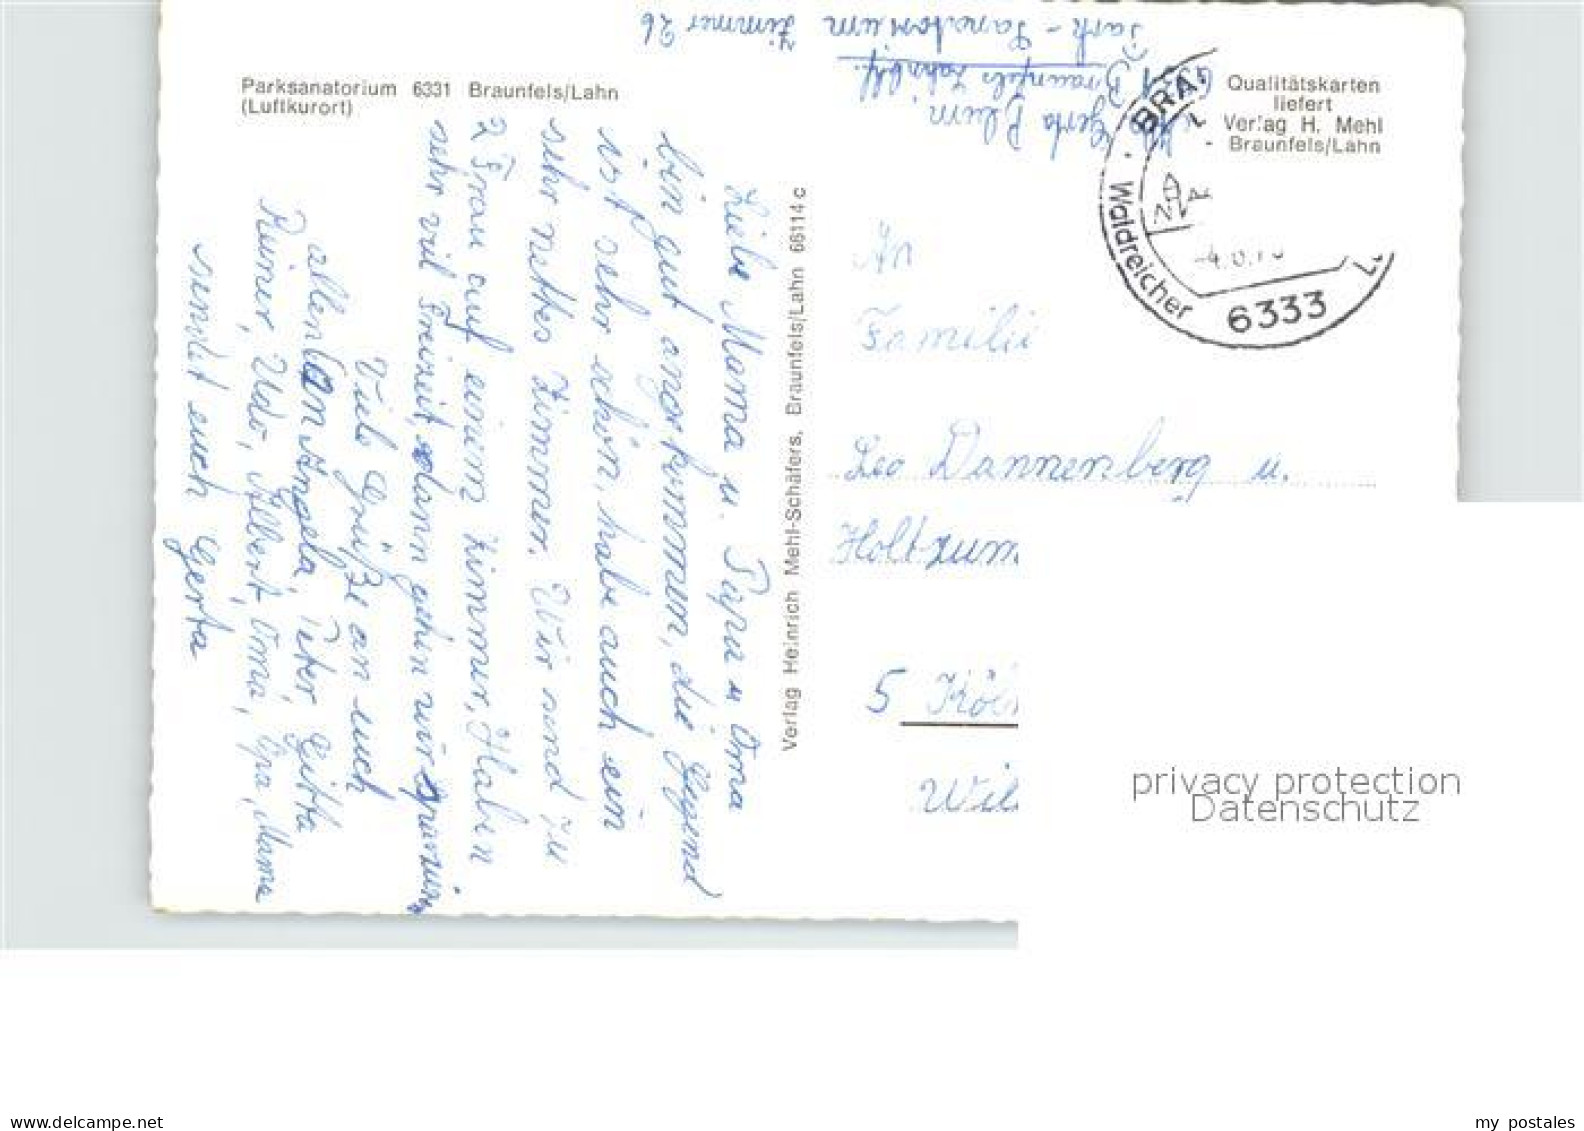 Parksanatorium 6331 Braunfels/Lahn
(Luftkurort)
Liebe Mama u. Papa u. Oma
bin gut angekommen, die Gegend
ist sehr schön, habe auch ein
sehr nettes Zimmer. Wir sind zu
2 Frau auf einem Zimmer, Haben
sehr viel Freizeit, dann gehen wir spazieren
Viele Grüße an euch
allen an Angela, Peter, Gitta
Reiner, Udo, Albert, Oma, Opa, Mama
sendet euch Gerta
Verlag Heinrich Mehl-Schäfers, Braunfels/Lahn 66114 c
Gerta Blum
6331 Braunfels Lahn
Park-Sanatorium Zimmer 26
Qualitätskarten
liefert
Verlag H. Mehl
Braunfels/Lahn
BRA
Waldreicher
6333
An
Familie
Leo Dannenberg u.
Holtzum
5 Köl
Wil
privacy protection
Datenschutz
www.delcampe.net
my postales